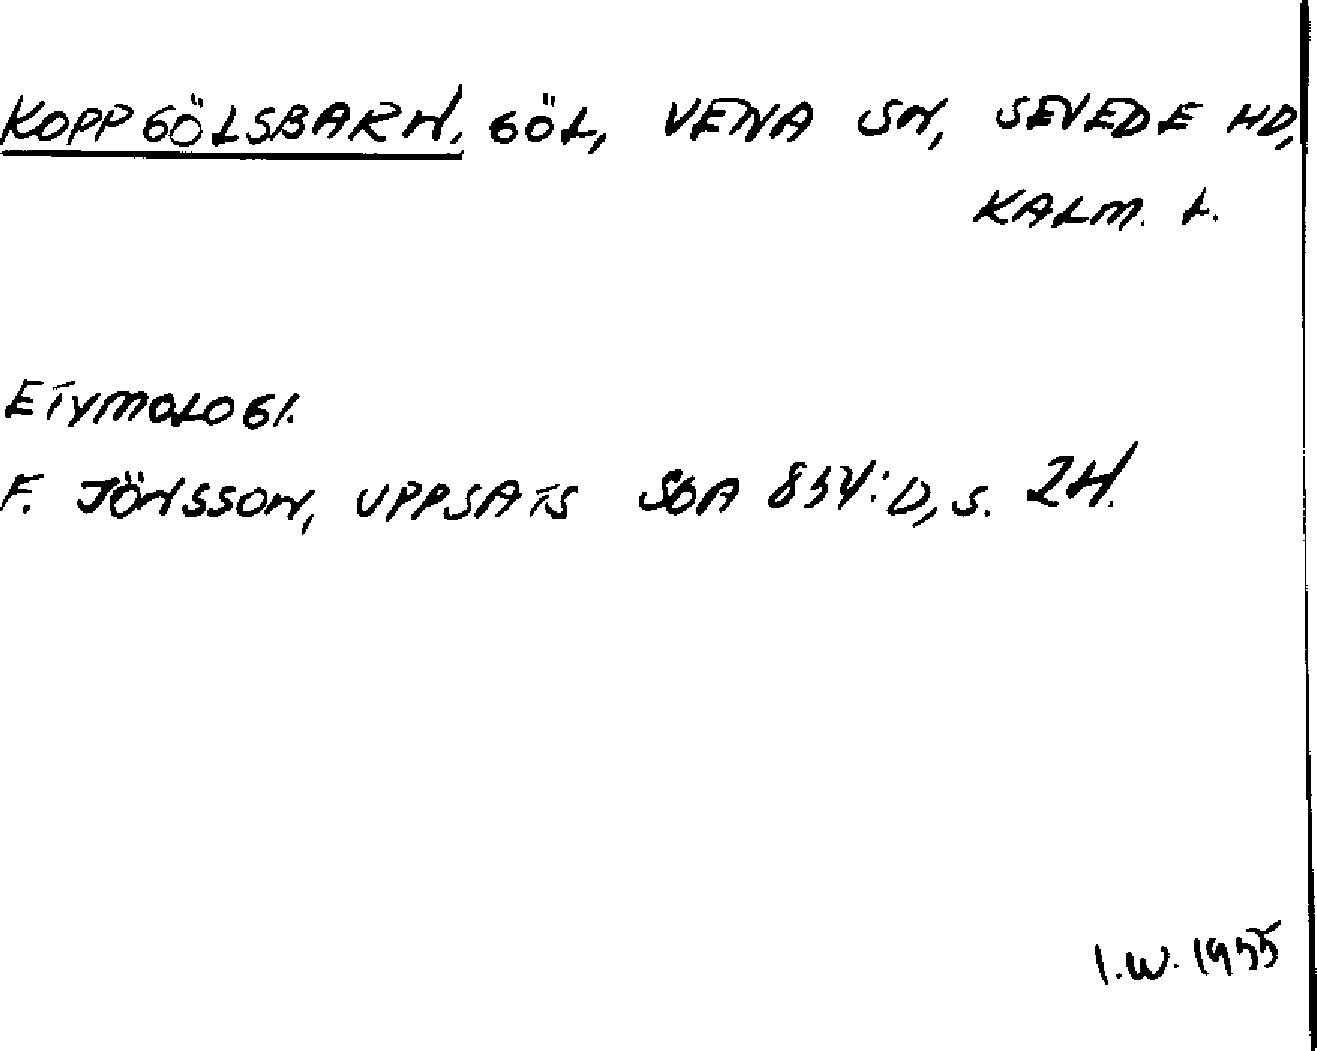 KOPPGÖLSBARN, GÖL, VENA SN, SEVEDE HD,
KALM. L.
ETYMOLOGI.
F. JÖNSSON, UPPSATS SOA 834:D, S. 24.
I.W. 1955